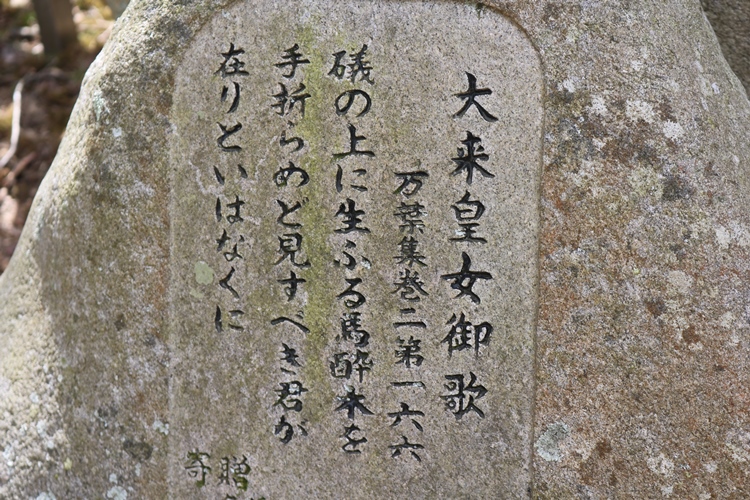 大来皇女御歌
万葉集巻二第一六六
礒の上に生ふる馬酔木を
手折らめど見すべき君が
在りといはなくに
贈
寄